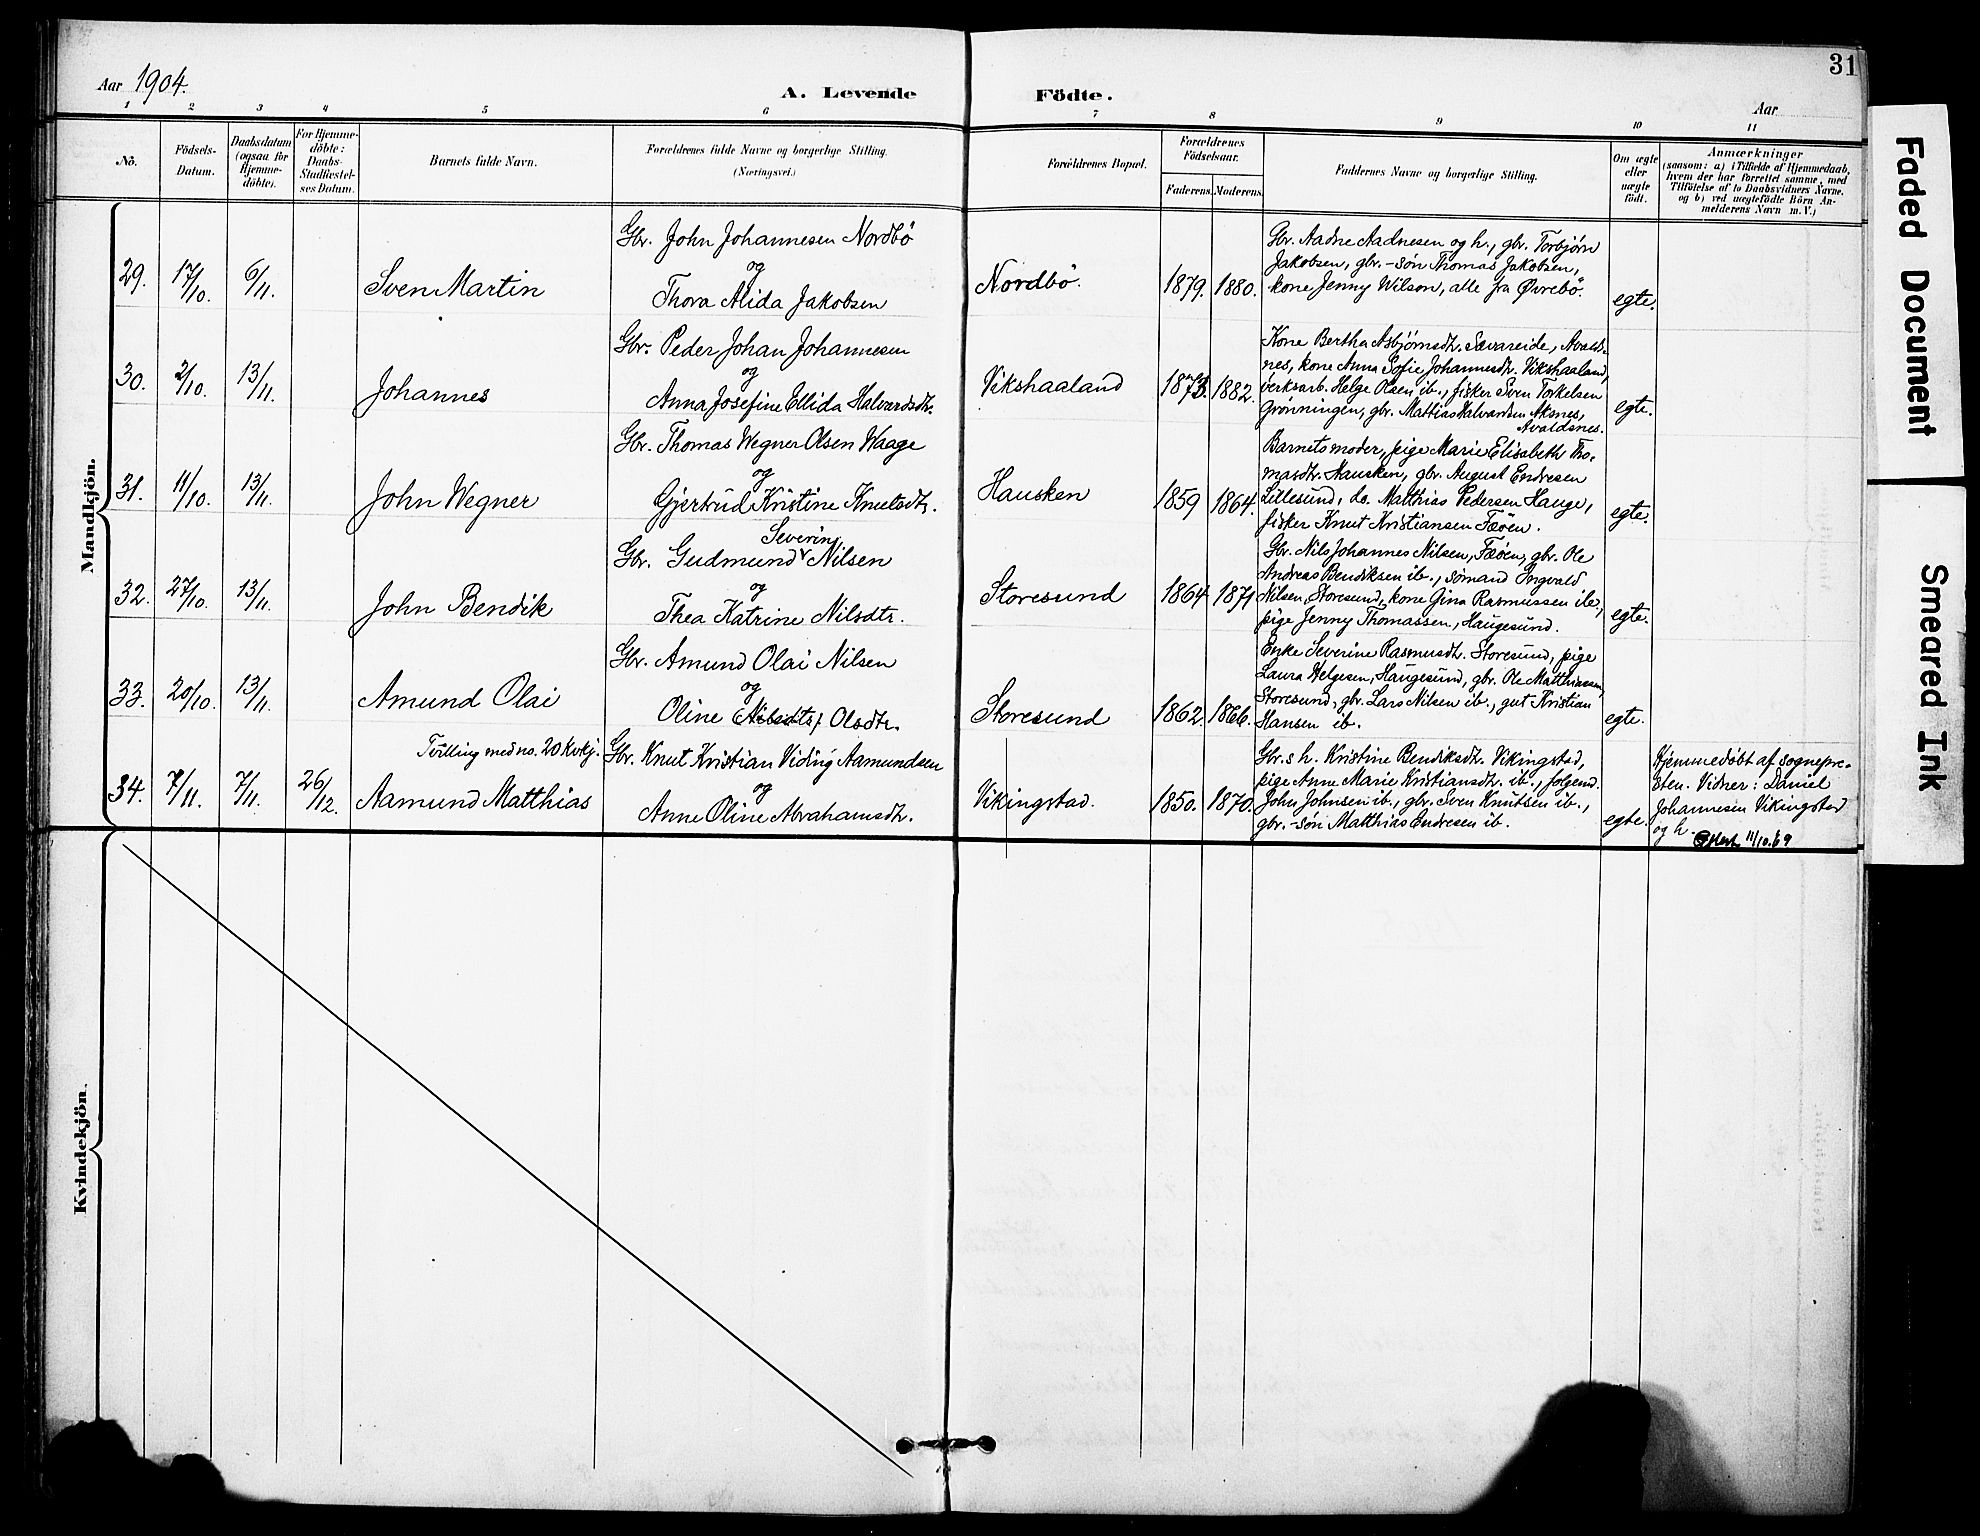 31
Aar 1904.
A. Levende Födte.
Aar
1 2 3 4 5 6 7 8 9 10 11
No.
Födsels-
Datum.
Daabsdatum
(ogsaa for
Hjemme-
döbte).
For Hjemme-
döbte:
Daabs-
Stadfæstel-
ses Datum.
Barnets fulde Navn.
Forældrenes fulde Navne og borgerlige Stilling.
(Næringsvei.)
Forældrenes Bopæl.
Forældrenes
Födselsaar.
Faderens. Moderens.
Faddernes Navne og borgerlige Stilling.
Om ægte
eller
uægte
födt.
Anmærkninger
(saasom: a) i Tilfælde af Hjemmedaab,
hvem der har forrettet samme, med
Tilföielse af to Daabsvidners Navne.
og b) ved uægtefödte Börn An-
melderens Navn m. V.)
Mandkjön.
29. 17/10. 6/11. Sven Martin
Gbr. John Johannesen Nordbö
og
Thora Alida Jakobsen
Nordbö. 1879. 1880.
Gbr. Aadne Aadnesen og h., gbr. Torbjørn
Jakobsen, gbr.-søn Thomas Jakobsen,
kone Jenny Wilson, alle fra Øvrebö.
egte.
30. 2/10. 13/11. Johannes
Gbr. Peder Johan Johannesen
og
Anna Josefine Ellida Halvardsdtr.
Vikshaaland 1873. 1882.
Kone Bertha Asbjørnsdtr. Sævareide, Avalds-
nes, kone Anna Sofie Johannesdtr. Vikshaaland,
verksarb. Helge Olsen ib., fisker Sven Torkelsen
Grønningen, gbr. Mattias Halvardsen Aksnes,
Avaldsnes.
egte.
31. 11/10. 13/11. John Wegner
Gbr. Thomas Wegner Olsen Waage
og
Gjertrud Kristine Knutsdtr.
Hausken 1859 1864.
Barnets moder, pige Marie Elisabeth Tho-
masdtr. Hausken, gbr. August Endresen
Lillesund, do. Matthias Pedersen Hauge,
fisker Knut Kristiansen Fæöen.
egte.
32. 27/10. 13/11. John Bendik
Severin
Gbr. Gudmund Nilsen
og
Thea Katrine Nilsdtr.
Storesund 1864 1871
Gbr. Nils Johannes Nilsen, Fæöen, gbr. Ole
Andreas Bendiksen ib., sömand Ingvald
Nilsen, Storesund, kone Gina Rasmussen ib.,
pige Jenny Thomassen, Haugesund.
egte.
33. 20/10. 13/11. Amund Olai
Gbr. Amund Olai Nilsen
og
Oline Nilsdtr. Olsdtr.
Storesund 1862. 1866.
Enke Severine Rasmusdtr. Storesund, pige
Laura Helgesen, Haugesund, gbr. Ole Matthiassen,
Storesund, gbr. Lars Nilsen ib., gut Kristian
Hansen ib.
egte.
Tvilling med no. 20 Kvkj.
34. 7/11. 7/11. 26/12. Aamund Matthias
Gbr. Knut Kristian Viding Aamundsen
og
Anne Oline Abrahamsdtr.
Vikingstad. 1850. 1870.
Gbr.s h. Kristine Bendiksdtr. Vikingstad,
pige Anne Marie Kristiansdtr. ib., folgemd.
John Johnsen ib., gbr. Sven Knutsen ib.,
gbr.-søn Matthias Endresen ib.
egte.
Hjemmedöbt af sognepre-
sten. Vidner: Daniel
Johannesen Vikingstad
og h.
11/10.69
Kvindekjön.
Faded Document
Smeared Ink